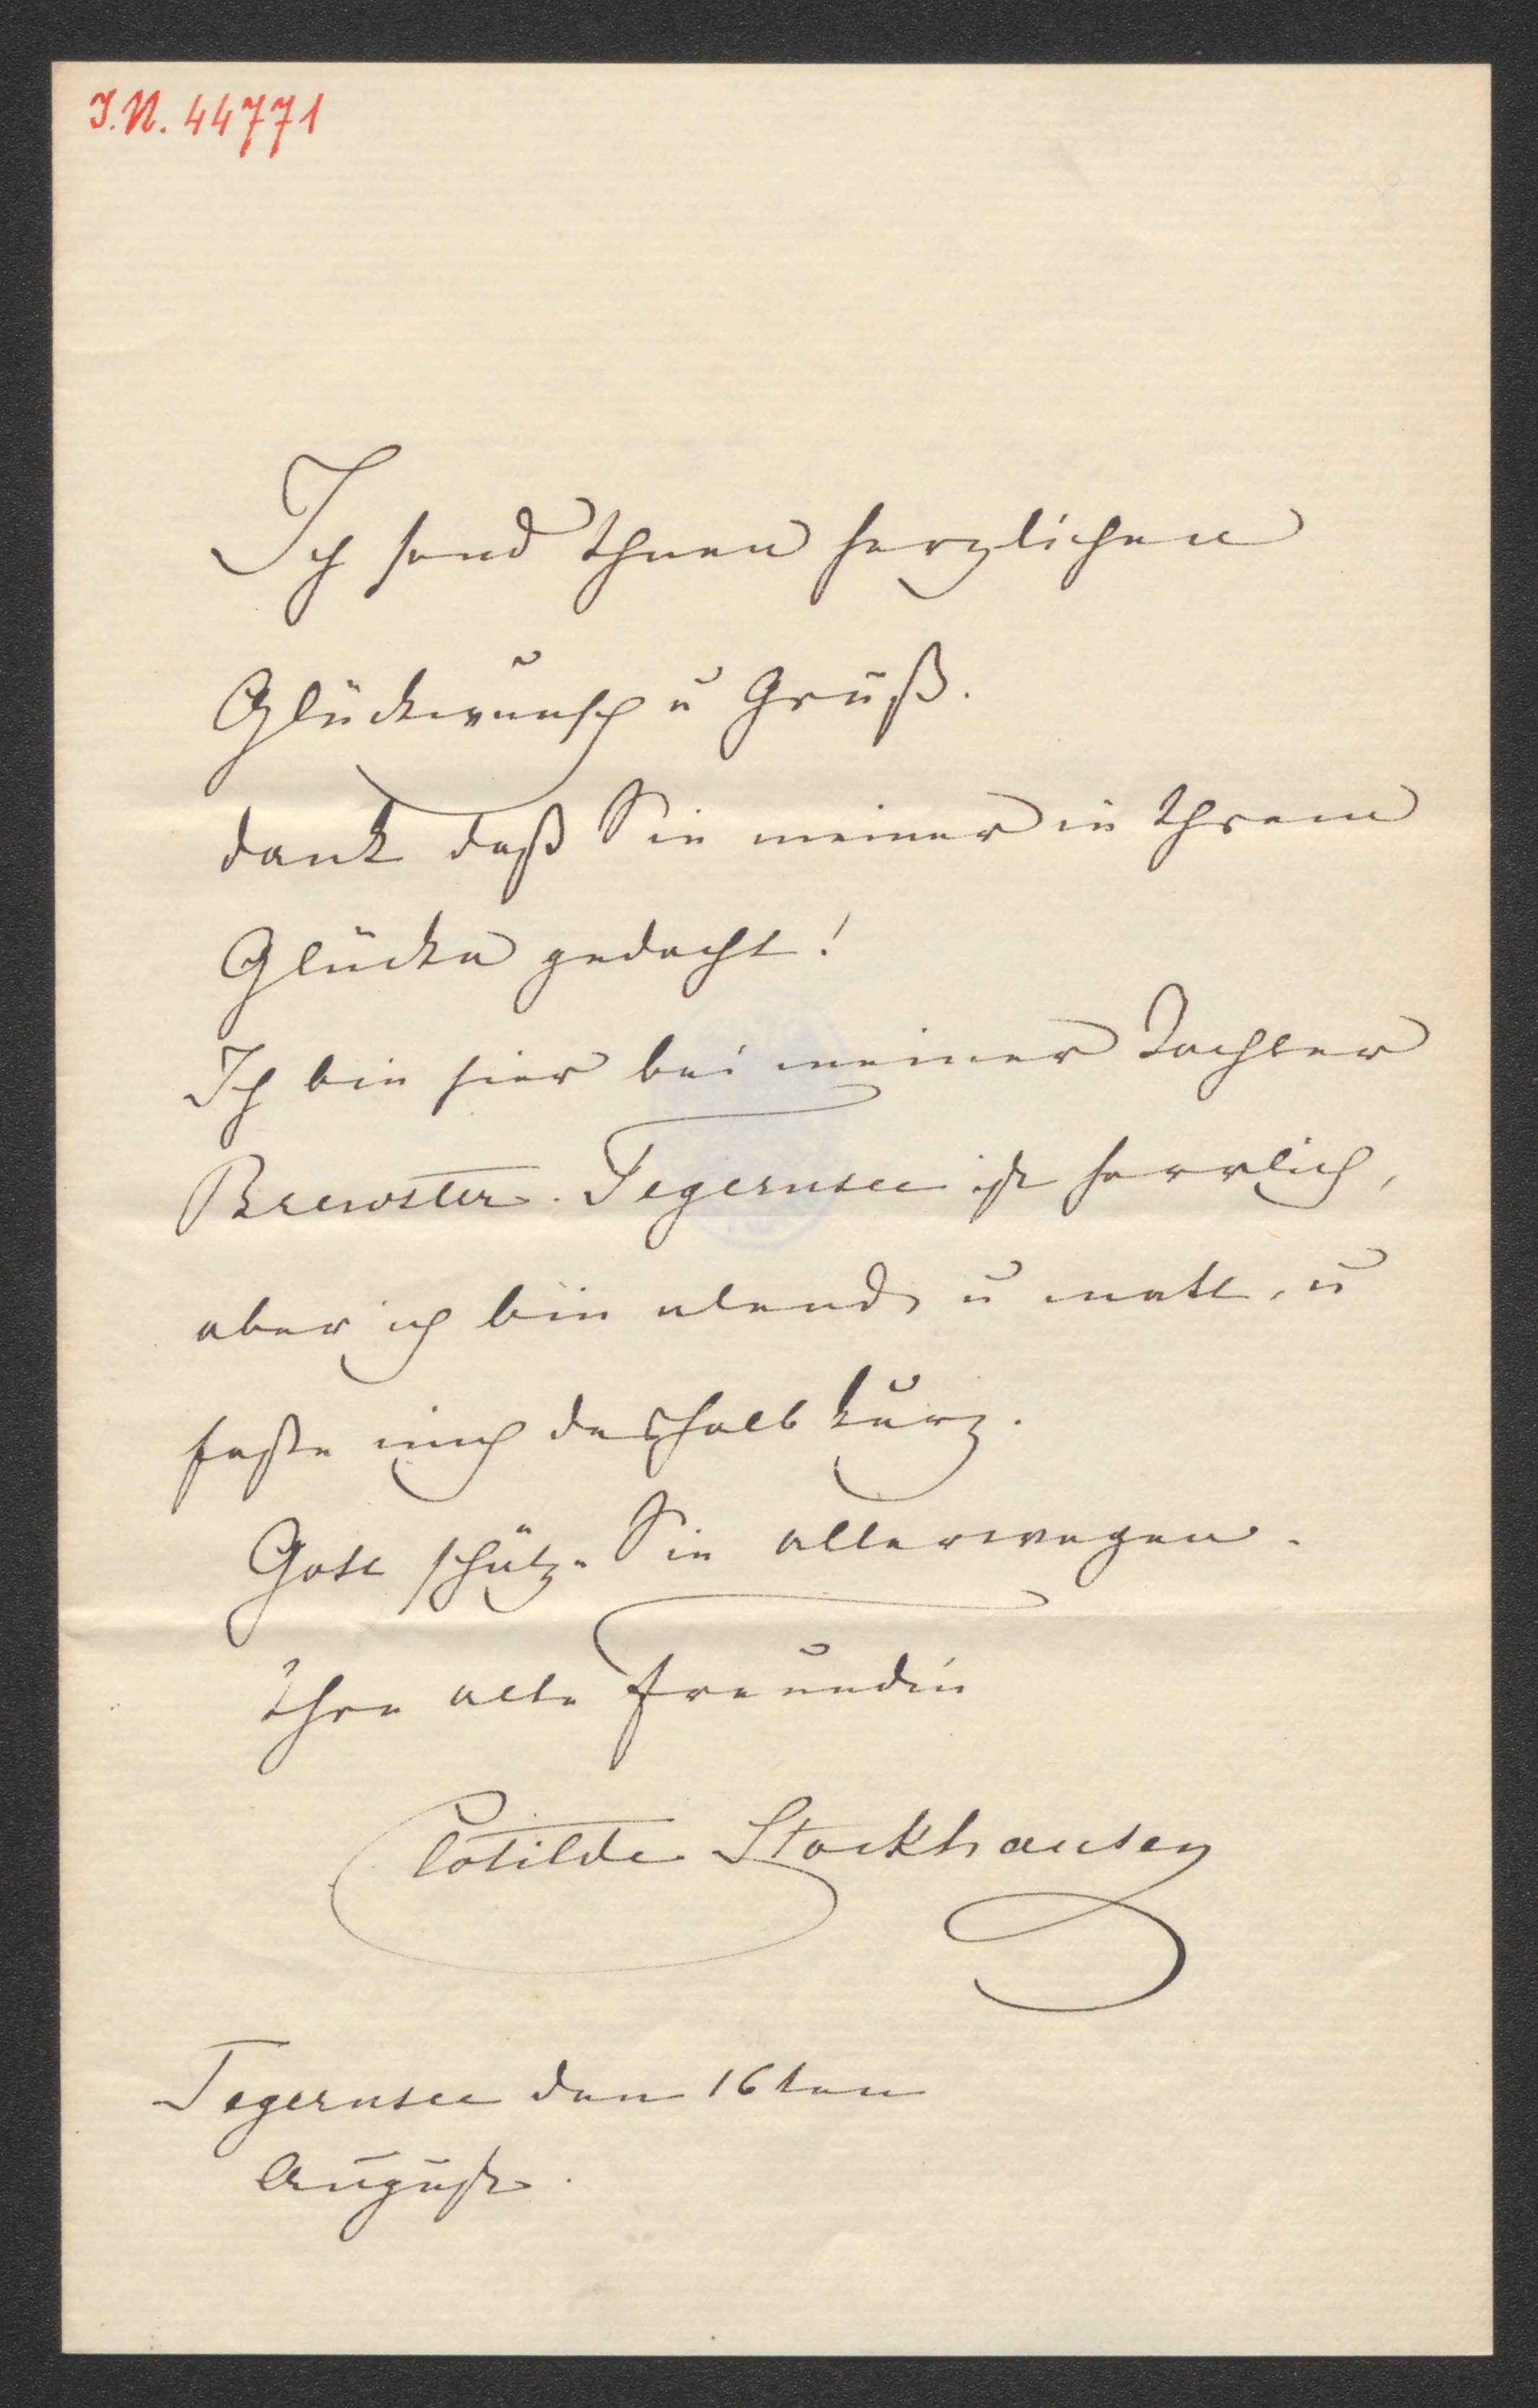 I.N. 44771
Ich send Ihnen herzlichen
Glückwunsch u Gruß.
dank daß Sie meiner in Ihrem
Glücke gedacht!
Ich bin hier bei meiner Tochter
Brewster. Tegernsee ist herrlich,
aber ich bin elend u matt, u
faße mich deßhalb kurz.
Gott schütze Sie allerwegen.
Ihre alte Freundin
Clotilde Stockhausen
Tegernsee den 16ten
August.